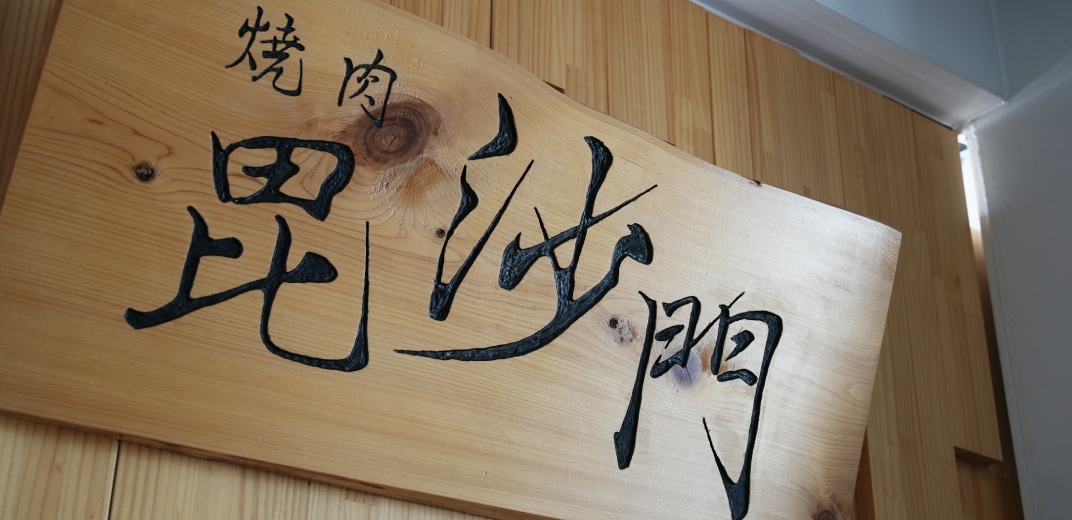 燒肉
毘沙門